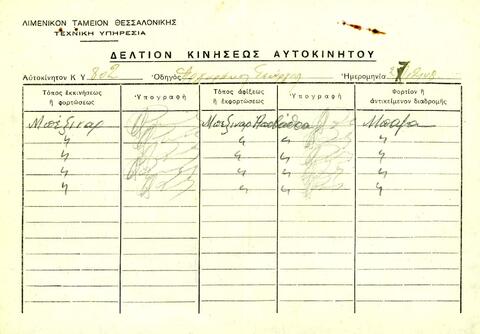 ΛΙΜΕΝΙΚΟΝ ΤΑΜΕΙΟΝ ΘΕΣΣΑΛΟΝΙΚΗΣ
ΤΕΧΝΙΚΗ ΥΠΗΡΕΣΙΑ
ΔΕΛΤΙΟΝ ΚΙΝΗΣΕΩΣ ΑΥΤΟΚΙΝΗΤΟΥ
Αὐτοκίνητον Κ.Υ. 802 Ὁδηγὸς Γεώργιος Ἡμερομηνία
Τόπος ἐκκινήσεως ἢ φορτώσεως Ὑπογραφὴ Τόπος ἀφίξεως ἢ ἐκφορτώσεως Ὑπογραφὴ Φορτίον ἢ ἀντικείμενον διαδρομῆς
Μπέξιναρ Μπέξιναρ Μπάζα
〃 〃 〃 〃
〃 〃 〃 〃
〃 〃 〃 〃
〃 〃 〃 〃